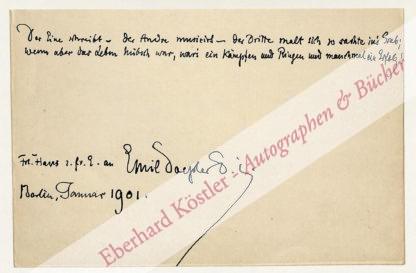 Der Eine schreibt – der Andre musicirt – der Dritte malt sich so sachte in's Grab;
wenn aber das Leben hübsch war, war's ein Kämpfen und Ringen und manchmal ein Erfolg!
Emil Doepler d. j.
Berlin, Januar 1901.
Eberhard Köstler - Autographen & Bücher